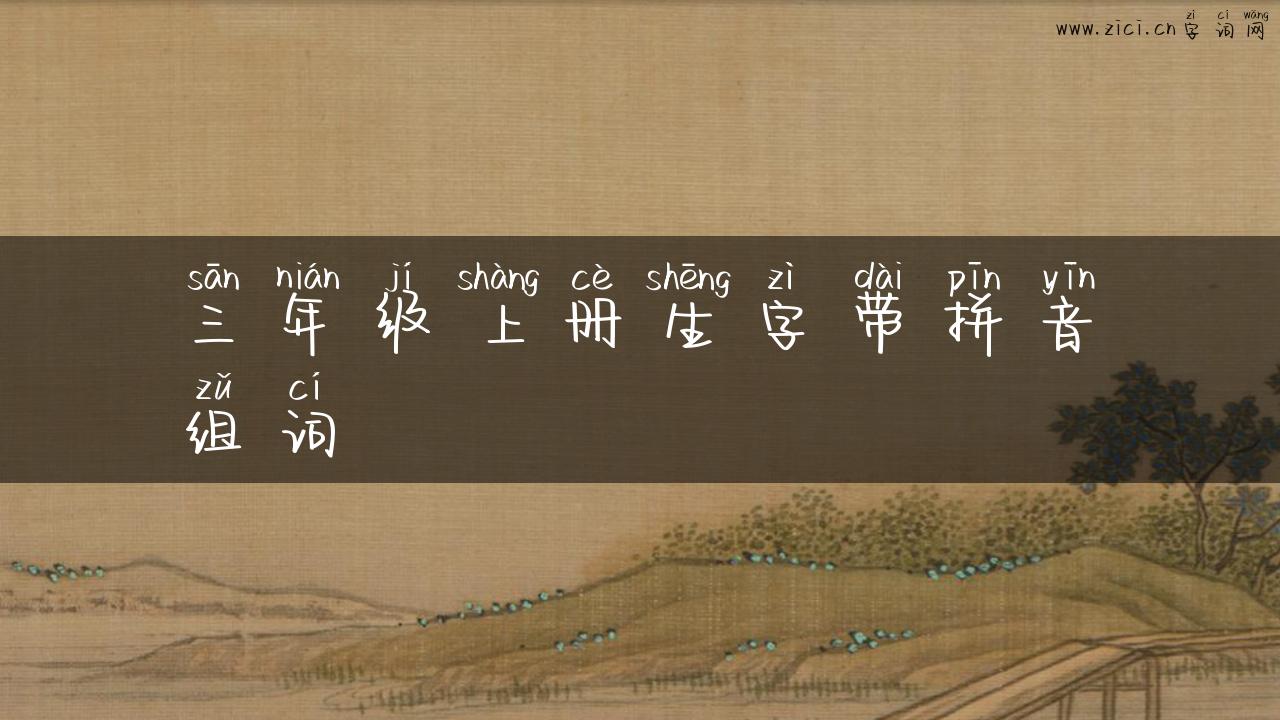 zì cí wǎng
www.zici.cn字词网
sān nián jí shàng cè shēng zì dài pīn yīn
三年级上册生字带拼音
zǔ cí
组词